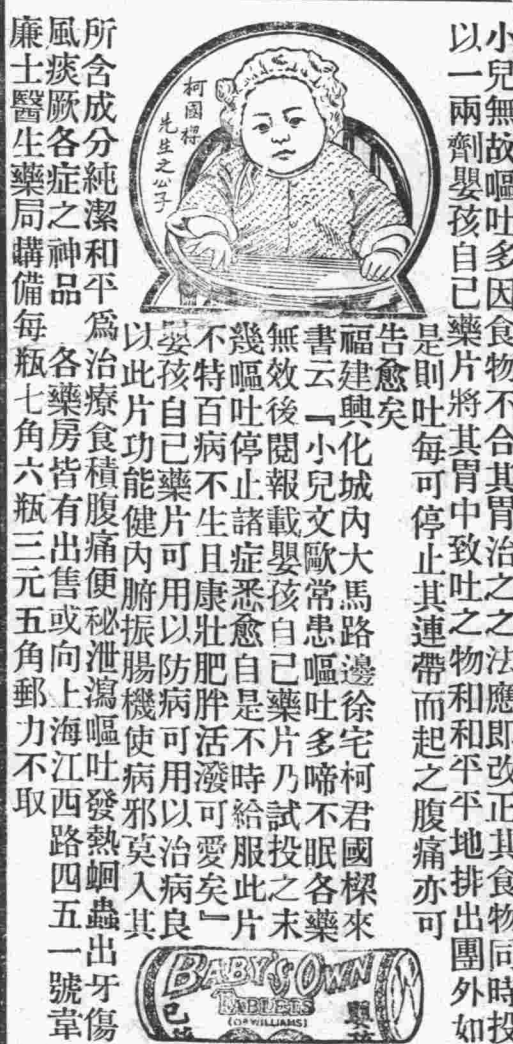 小兒無故嘔吐多因食物不合其胃治之之法應即改正其食物同時投
以一兩劑嬰孩自己藥片將其胃中致吐之物和和平平地排出團外如
是則吐每可停止其連帶而起之腹痛亦可
告愈矣
福建興化城內大馬路邊徐宅柯君國樑來
書云『小兒文歐常患嘔吐多啼不眠各藥
無效後閱報載嬰孩自己藥片乃試投之未
幾嘔吐停止諸症悉愈自是不時給服此片
不特百病不生且康壯肥胖活潑可愛矣』
嬰孩自己藥片可用以防病可用以治病良
以此片功能健內腑振腸機使病邪莫入其
所含成分純潔和平爲治療食積腹痛便秘泄瀉嘔吐發熱蛔蟲出牙傷
風痰厥各症之神品 各藥房皆有出售或向上海江西路四五一號韋
廉士醫生藥局購備每瓶七角六瓶三元五角郵力不取
柯國樑
先生之公子
BABY'S OWN
TABLETS
(DR WILLIAMS)
嬰孩
自己